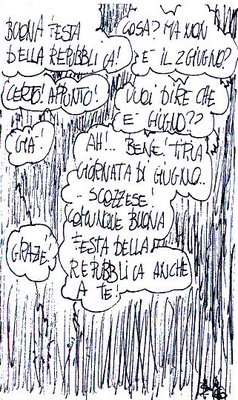 BUONA FESTA
DELLA REPUBBLICA!
COSA? MA NON
E' IL 2 GIUGNO?
CERTO! APPUNTO!
VUOI DIRE CHE
E' GIUGNO??
GIA'!
AH!.. BENE! TIPICA
GIORNATA DI GIUGNO..
..SCOZZESE!
COMUNQUE BUONA
FESTA DELLA
REPUBBLICA ANCHE
A TE!
GRAZIE!